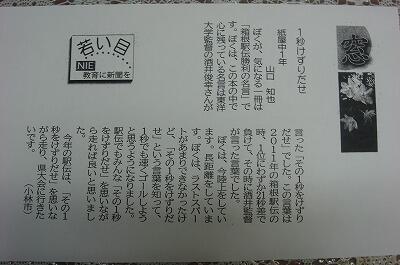 窓
1秒けずりだせ
紙屋中1年
山口 知也
ぼくが、気になる一冊は
「箱根駅伝勝利の名言」で
す。ぼくは、この本の中で
心に残っている名言は東洋
大学監督の酒井俊幸さんが
言った「その1秒をけずり
だせ」でした。この言葉は
2011年の箱根駅伝の
時、1位にわずか21秒差で
負けて、その時に酒井監督
が言った言葉でした。
ぼくは、今陸上をしてい
ます。長距離をしていま
す。ぼくは、ラストスパー
トがあまりできなかったけ
ど、「その1秒をけずりだ
せ」という言葉を知って、
1秒でも速くゴールしよう
と思うようになりました。
駅伝でもみんな「その1秒
をけずりだせ」を思いなが
ら走れば良いと思いまし
た。
今年の駅伝は、「その1
秒をけずりだせ」を思いな
がら走り、県大会に行きた
いです。 (小林市)
若い目
NIE
教育に新聞を